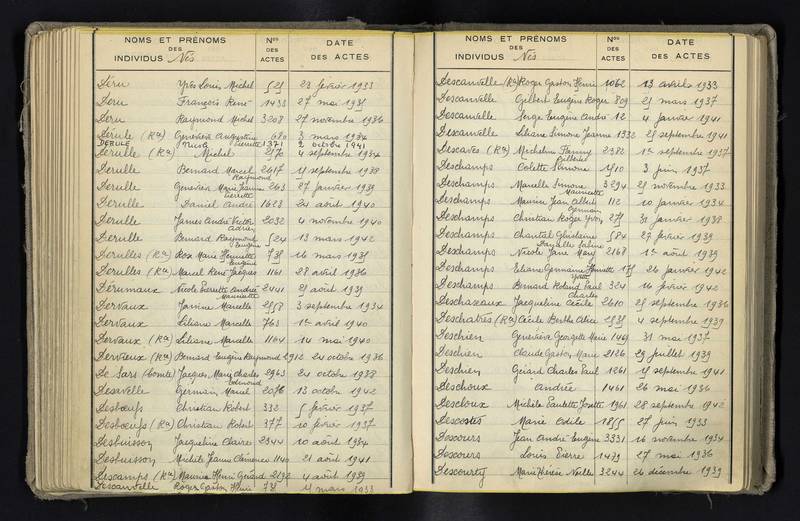 NOMS ET PRÉNOMS
DES
INDIVIDUS Nés
Nos
DES
ACTES
DATE
DES ACTES
Deru Yves Louis Michel 23 février 1933
Deru François René 1433 27 mai 1935
Deru Raymond Michel 3208 27 novembre 1936
Derule (Ra) Geneviève Augustine 680 3 mars 1934
DERULE Pierrette 1371 2 octobre 1941
Derulle (Ra) Michel 4 septembre 1934
Derulle Bernard Marcel Raymond 2617 septembre 1938
Derulle Geneviève Marie Jeanne Pierrette 263 27 janvier 1939
Derulle Daniel André 1623 24 août 1940
Derulle James André Victor Adrien 2032 4 novembre 1940
Derulle Bernard Raymond Eugène 524 13 mars 1942
Derulles (Ra) Rose Marie Henriette Eugénie 16 mars 1935
Derulles (Ra) Marcel René Jacques 1161 28 avril 1936
Derumaux Nicole Pierrette Andrée Mauricette 2441 août 1939
Dervaux Janine Marcelle 3 septembre 1934
Dervaux Liliane Marcelle 763 1er avril 1940
Dervaux (Ra) Liliane Marcelle 1104 14 mai 1940
Dervieux (Ra) Bernard Eugène Raymond 2912 24 octobre 1936
De Sars (Comte) Jacques Marie Charles Edmond 2963 24 octobre 1938
Desavelle Germain Marcel 2076 13 octobre 1942
Desbœufs Christian Robert 332 5 février 1937
Desbœufs (Ra) Christian Robert 377 10 février 1937
Desbuisson Jacqueline Claire 2344 10 août 1934
Desbuisson Michèle Jeanne Clémence 1140 21 août 1941
Descamps (Ra) Maurice Henri Gérard 2192 4 août 1939
Descanvelle Roger Gaston Henri mars 1933
NOMS ET PRÉNOMS
DES
INDIVIDUS Nés
Nos
DES
ACTES
DATE
DES ACTES
Descanvelle (Ra) Roger Gaston Henri 1062 13 avril 1933
Descanvelle Gilbert Eugène Roger 809 21 mars 1937
Descanvelle Serge Eugène André 12 4 janvier 1941
Descanvelle Liliane Simone Jeanne 1332 25 septembre 1941
Descaves (Ra) Micheline Fanny 2382 1er septembre 1937
Deschamps Colette Simone 1510 3 juin 1937
Deschamps Marcelle Simone Mauricette 3294 novembre 1933
Deschamps Maurice Jean Albert Germain 112 10 janvier 1934
Deschamps Christian Roger Yvon 31 janvier 1938
Deschamps Chantal Ghislaine 584 27 février 1939
Deschamps Nicole Jane Mary 2168 1er août 1939
Deschamps Eliane Germaine Henriette 26 janvier 1942
Deschamps Bernard Roland Paul Charles 324 16 février 1942
Deschaseaux Jacqueline Cécile 2610 25 septembre 1936
Deschatres (Ra) Cécile Berthe Alice 4 septembre 1939
Deschien Geneviève Georgette Marie 1469 31 mai 1937
Deschien Claude Gaston Marie 2126 29 juillet 1939
Deschien Gérard Charles Paul 1261 septembre 1941
Deschoux Andrée 1461 26 mai 1936
Descloux Michèle Paulette Josette 1961 28 septembre 1942
Descostes Marie Odile 1855 27 juin 1933
Descours Jean André Eugène 3331 16 novembre 1934
Descours Louis Pierre 1479 27 mai 1936
Descourty Marie Thérèse Noëlle 3244 26 décembre 1939